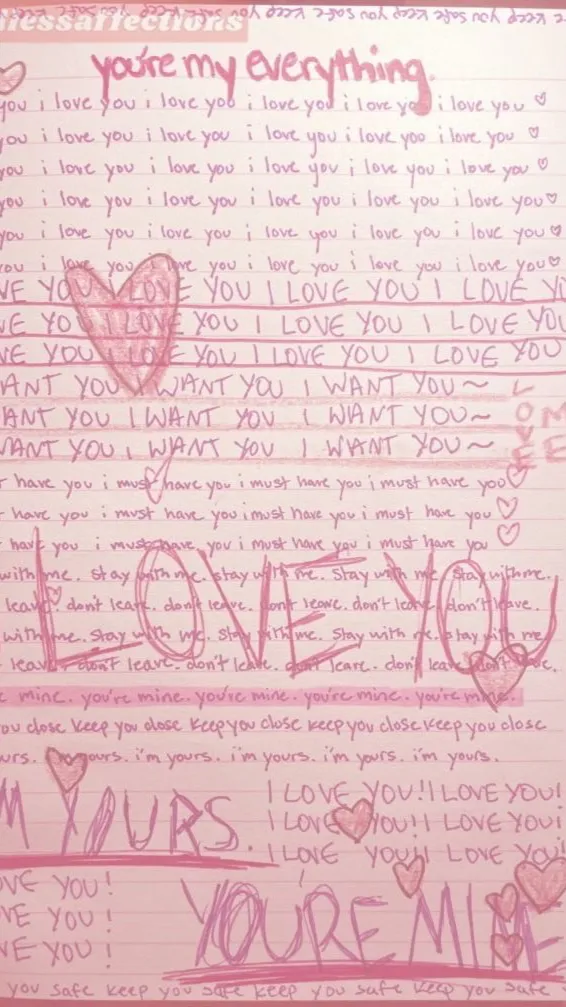 nessaffections
keep you safe keep you safe keep you safe keep you safe
you're my everything.
you i love you i love you i love you i love you i love you ♡
ou i love you i love you i love you i love yoo i love you ♡
you i love you i love you i love you i love you i love you ♡
you i love you i love you i love you i love you i love you ♡
you i love you i love you i love you i love you i love you ♡
you i love you i love you i love you i love you i love you ♡
VE YOU I LOVE YOU I LOVE YOU I LOVE YO
VE YOU I LOVE YOU I LOVE YOU I LOVE YOU
VE YOU I LOVE YOU I LOVE YOU I LOVE YOU
ANT YOU I WANT YOU I WANT YOU~
ANT YOU I WANT YOU I WANT YOU~
WANT YOU I WANT YOU I WANT YOU~
LOVE
ME
t have you i must have you i must have you i must have you ♡
t have you i must have you i must have you i must have you ♡
t have you i must have you i must have you i must have you ♡
LOVE YOU
with me. stay with me. stay with me. stay with me. stay with me.
leave. don't leave. don't leave. don't leave. don't leave. don't leave.
with me. stay with me. stay with me. stay with me. stay with me
leave. don't leave. don't leave. don't leave. don't leave. don't leave.
e mine. you're mine. you're mine. you're mine. you're mine.
ou close keep you close keep you close keep you close keep you close
urs. i'm yours. i'm yours. i'm yours. i'm yours. i'm yours.
M YOURS.
I LOVE YOU! I LOVE YOU!
I LOVE YOU! I LOVE YOU!
I LOVE YOU! I LOVE YOU!
OVE YOU!
OVE YOU!
VE YOU!
YOU'RE MINE
you safe keep you safe keep you safe keep you safe